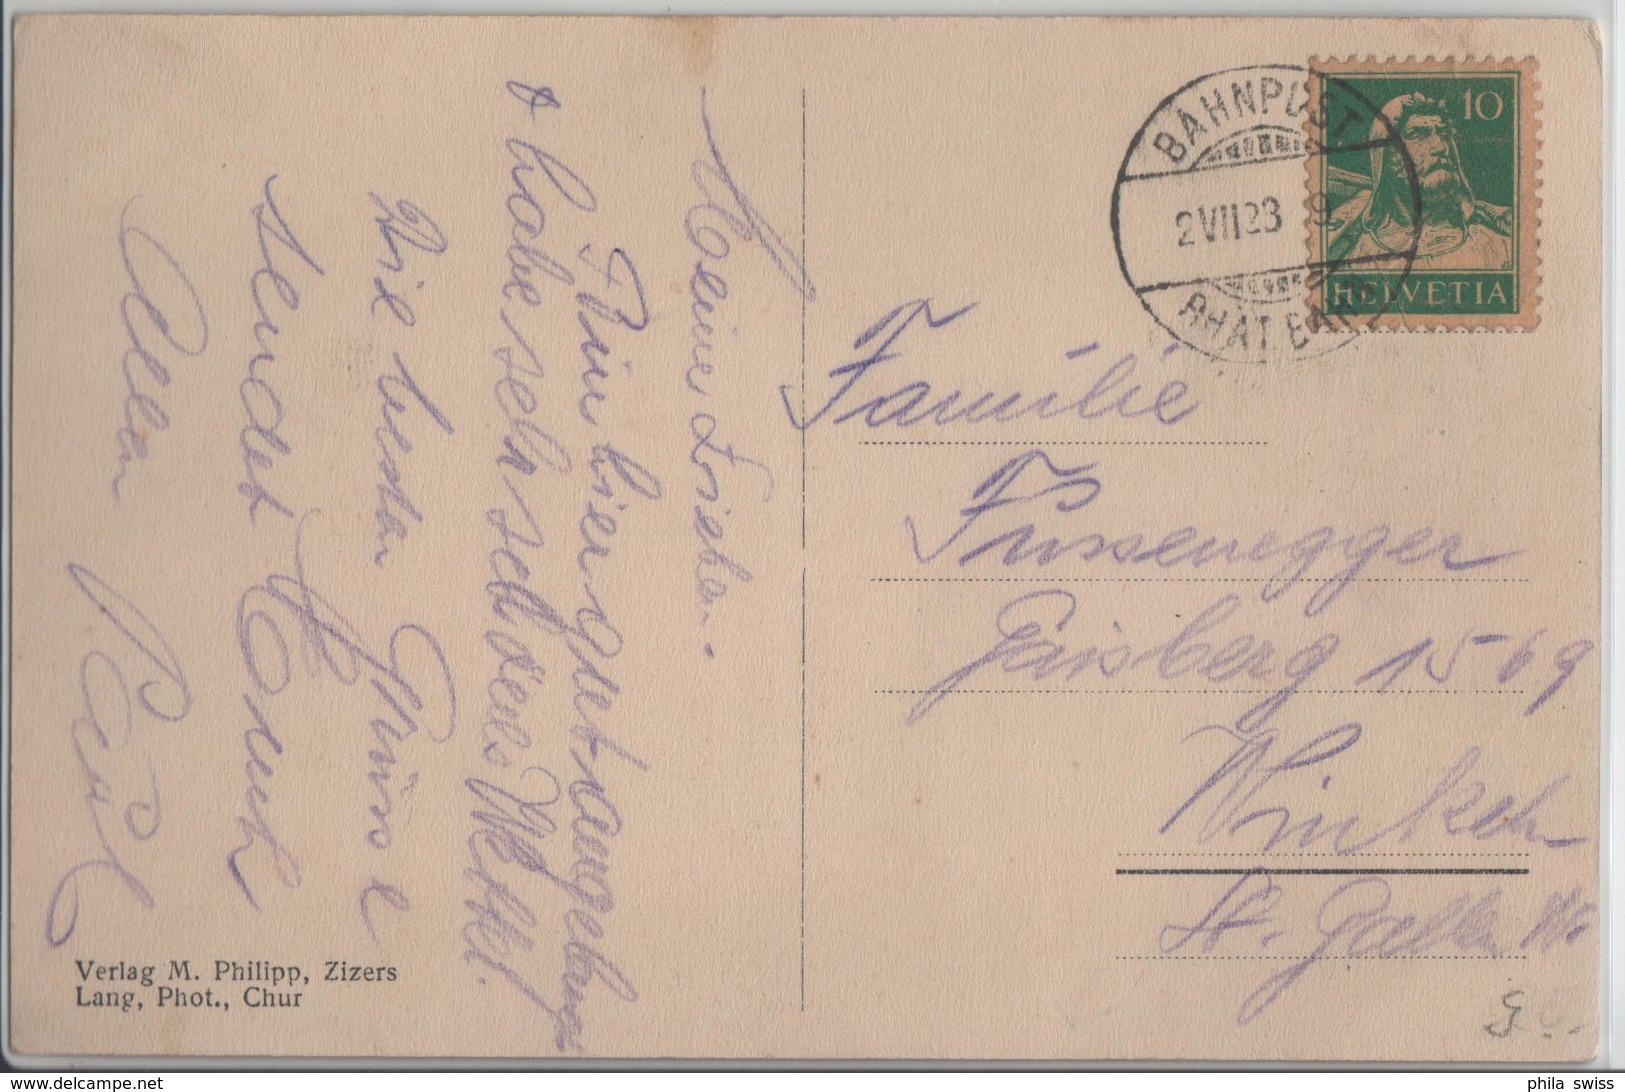 Meine Lieben.
Bin hier gut angelangt
& habe sehr schönes Wetter.
Die besten Grüsse
sendet Euch
Allen Paul
BAHNPOST
2 VII 23 9
RHÄT BAHN
10
HELVETIA
Familie
Fussenegger
Gaisberg 1569
Winkeln
St. Gallen W.
Verlag M. Philipp, Zizers
Lang, Phot., Chur
phila swiss